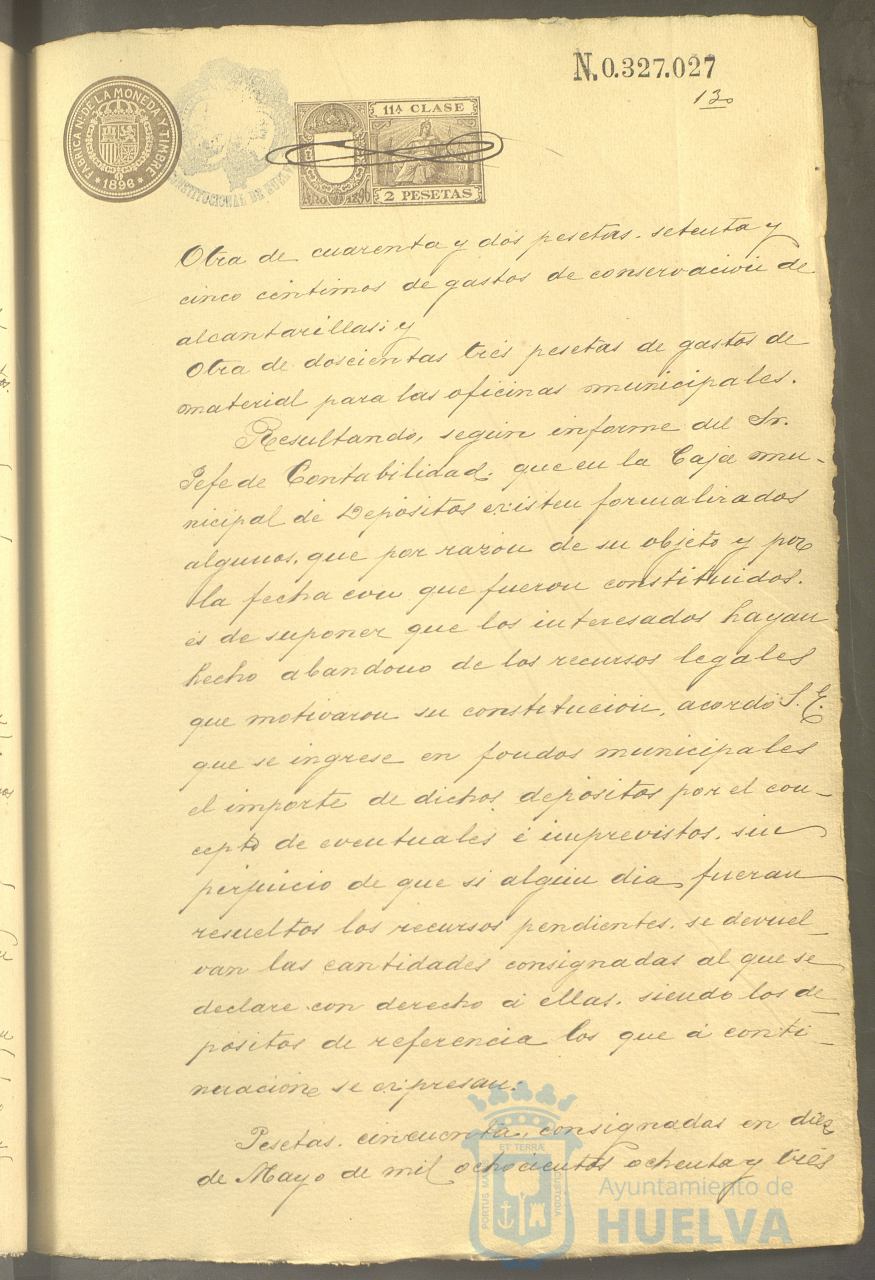 N.0.327.027
130
FABRICA NL DE LA MONEDA Y TIMBRE
* 1896 *
CONSTITUCIONAL DE HUELVA
11A CLASE
AÑO 1896
2 PESETAS
Otra de cuarenta y dos pesetas, setenta y
cinco céntimos de gastos de conservación de
alcantarillas; y
Otra de doscientas tres pesetas de gastos de
material para las oficinas municipales.
Resultando, según informe del Sr.
Jefe de Contabilidad, que en la Caja mu-
nicipal de Depósitos existen formalizados
algunos, que por razón de su objeto y por
la fecha con que fueron constituidos,
es de suponer que los interesados hayan
hecho abandono de los recursos legales
que motivaron su constitución, acordó S. E.
que se ingrese en fondos municipales
el importe de dichos depósitos por el con-
cepto de eventuales é imprevistos, sin
perjuicio de que si algún dia fueran
resueltos los recursos pendientes, se devuel-
van las cantidades consignadas al que se
declare con derecho á ellas, siendo los de-
pósitos de referencia los que á conti-
nuación se expresan:
Pesetas, cincuenta, consignadas en diez
de Mayo de mil ochocientos ochenta y tres
PORTUS MARIS
ET TERRÆ
CUSTODIA
Ayuntamiento de
HUELVA